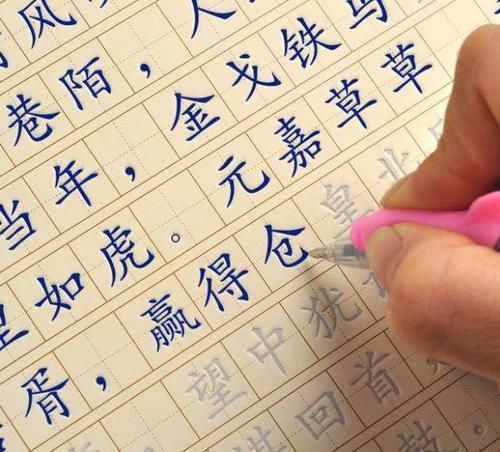 风
巷陌，人
当年，金戈铁马
里如虎。元嘉草草
胥，赢得仓皇北
望中犹
堪回首，